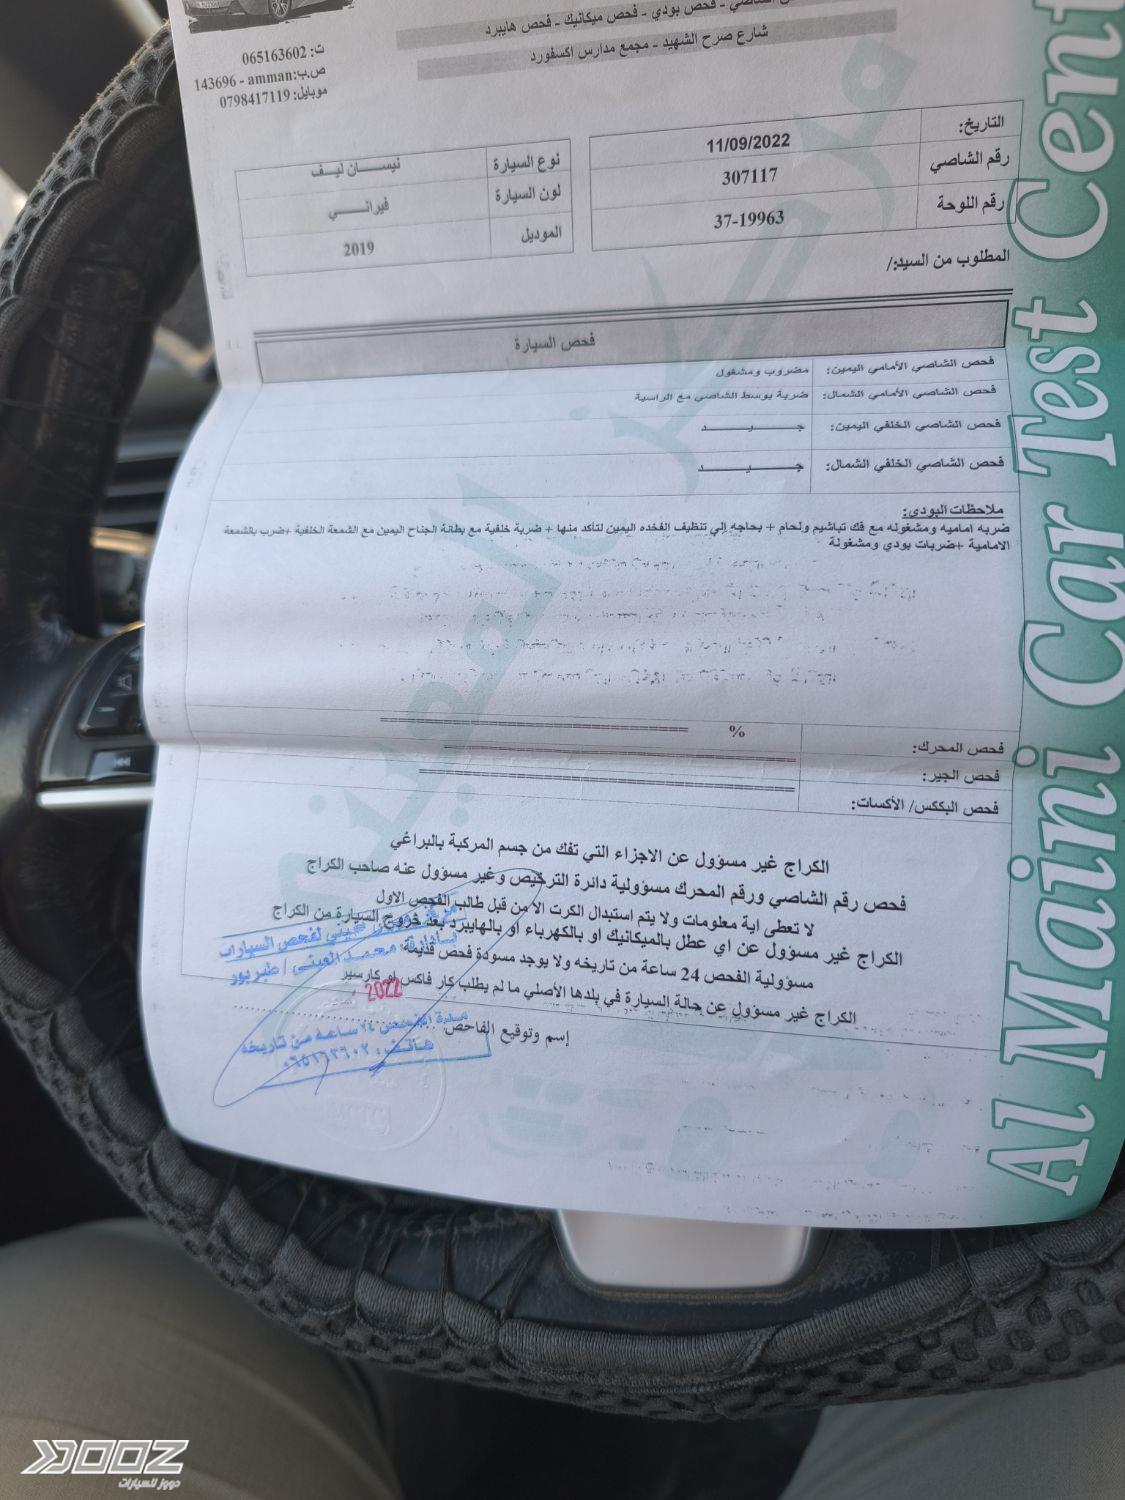 فحص بودي - فحص ميكانيك - فحص هايبرد
شارع صرح الشهيد - مجمع مدارس اكسفورد
ت: 065163602
ص.ب: amman - 143696
موبايل: 0798417119
التاريخ: 11/09/2022
رقم الشاصي 307117
رقم اللوحة 37-19963
نوع السيارة نيســـان ليـــف
لون السيارة فيرانـــــي
الموديل 2019
المطلوب من السيد:/
فحص السيارة
فحص الشاصي الأمامي اليمين: مضروب ومشغول
فحص الشاصي الأمامي الشمال: ضربة بوسط الشاصي مع الراسية
فحص الشاصي الخلفي اليمين: جـــــيـــــد
فحص الشاصي الخلفي الشمال: جـــــيـــــد
ملاحظات البودي:
ضربه اماميه ومشغوله مع فك تباشيم ولحام + بحاجه إلي تنظيف الفخده اليمين لتأكد منها + ضربة خلفية مع بطانة الجناح اليمين مع الشمعة الخلفية +ضرب بالشمعة
الامامية +ضربات بودي ومشغولة
فحص المحرك: %
فحص الجير:
فحص البككس/ الأكسات:
الكراج غير مسؤول عن الاجزاء التي تفك من جسم المركبة بالبراغي
فحص رقم الشاصي ورقم المحرك مسؤولية دائرة الترخيص وغير مسؤول عنه صاحب الكراج
لا تعطى اية معلومات ولا يتم استبدال الكرت الا من قبل طالب الفحص الاول
الكراج غير مسؤول عن اي عطل بالميكانيك او بالكهرباء او بالهايبرد بعد خروج السيارة من الكراج
مسؤولية الفحص 24 ساعة من تاريخه ولا يوجد مسودة فحص قديمة
الكراج غير مسؤول عن حالة السيارة في بلدها الأصلي ما لم يطلب كار فاكس او كارسير
إسم وتوقيع الفاحص:
لفحص السيارات
بإدارة: محمد العيني / طبربور
2022
مدة الفحص ٢٤ ساعه من تاريخه
هاتف: ٠٦٥١٦٣٦٠٢
Al Maini Car Test Cent
DOOZ
دووز للسيارات